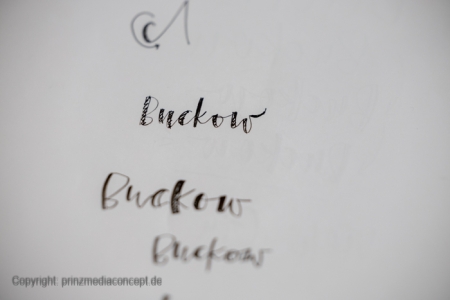 Buckow
Buckow
Buckow
Copyright: prinzmediaconcept.de